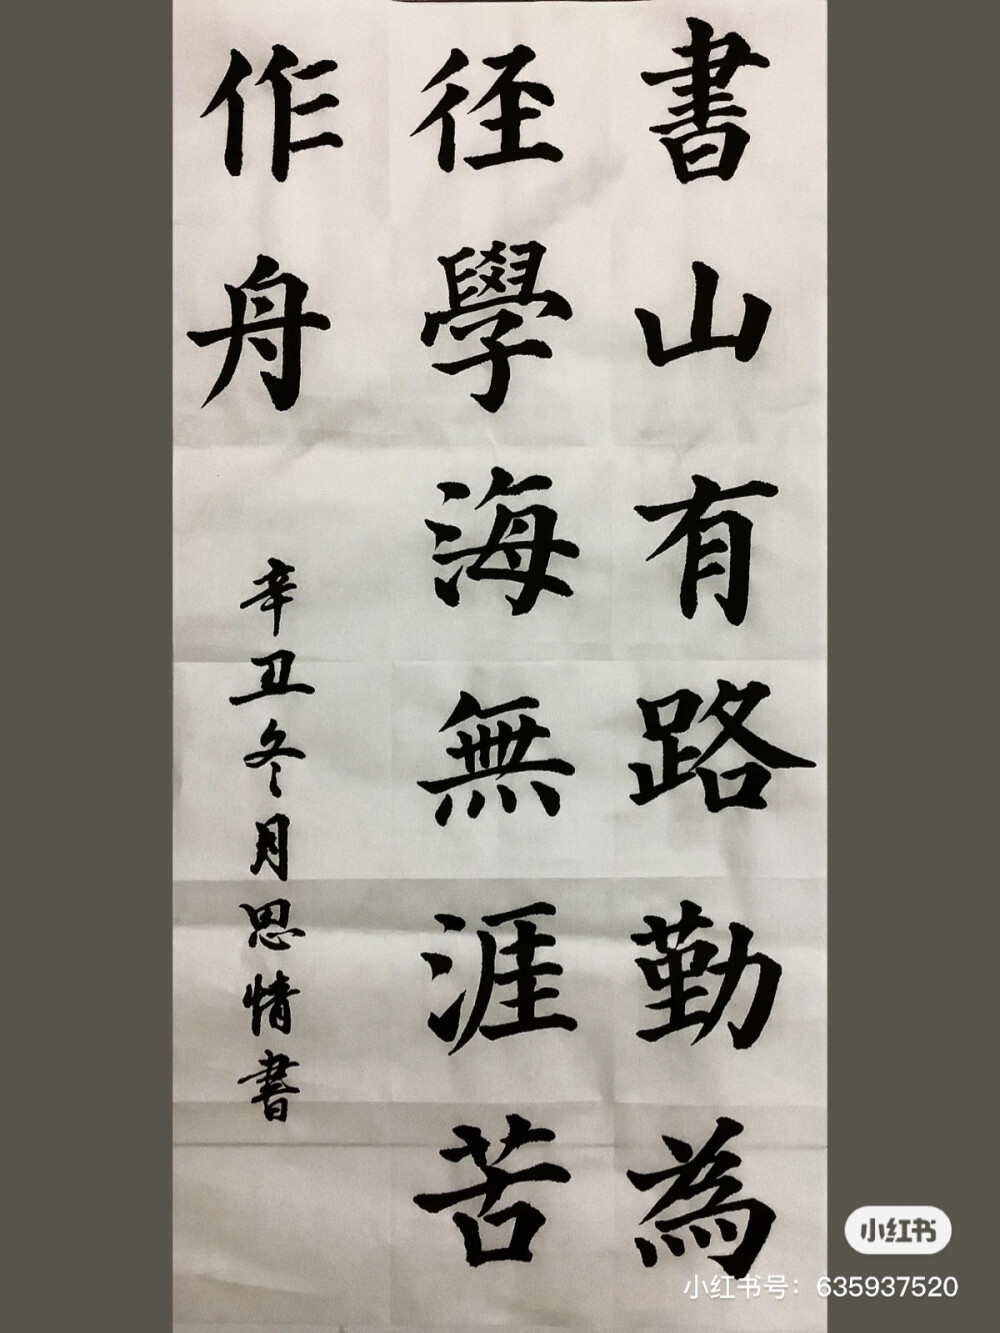 書山有路勤為
徑學海無涯苦
作舟
辛丑冬月思情書
小红书
小红书号：635937520